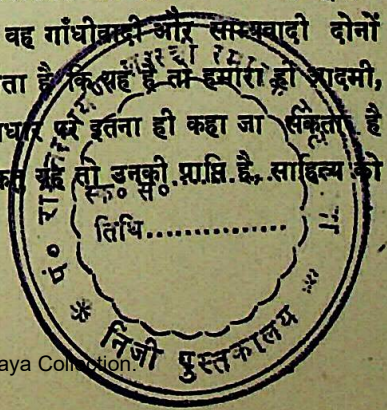 वह गाँधीवादी और साम्यवादी दोनों
ता है कि यह है तो हमारा ही आदमी,
धार पर इतना ही कहा जा सकता है
यह तो उनकी प्राप्ति है, साहित्य को
पं०
स्क० सं०
तिथि...............
* निजी पुस्तकालय
aya Collection.